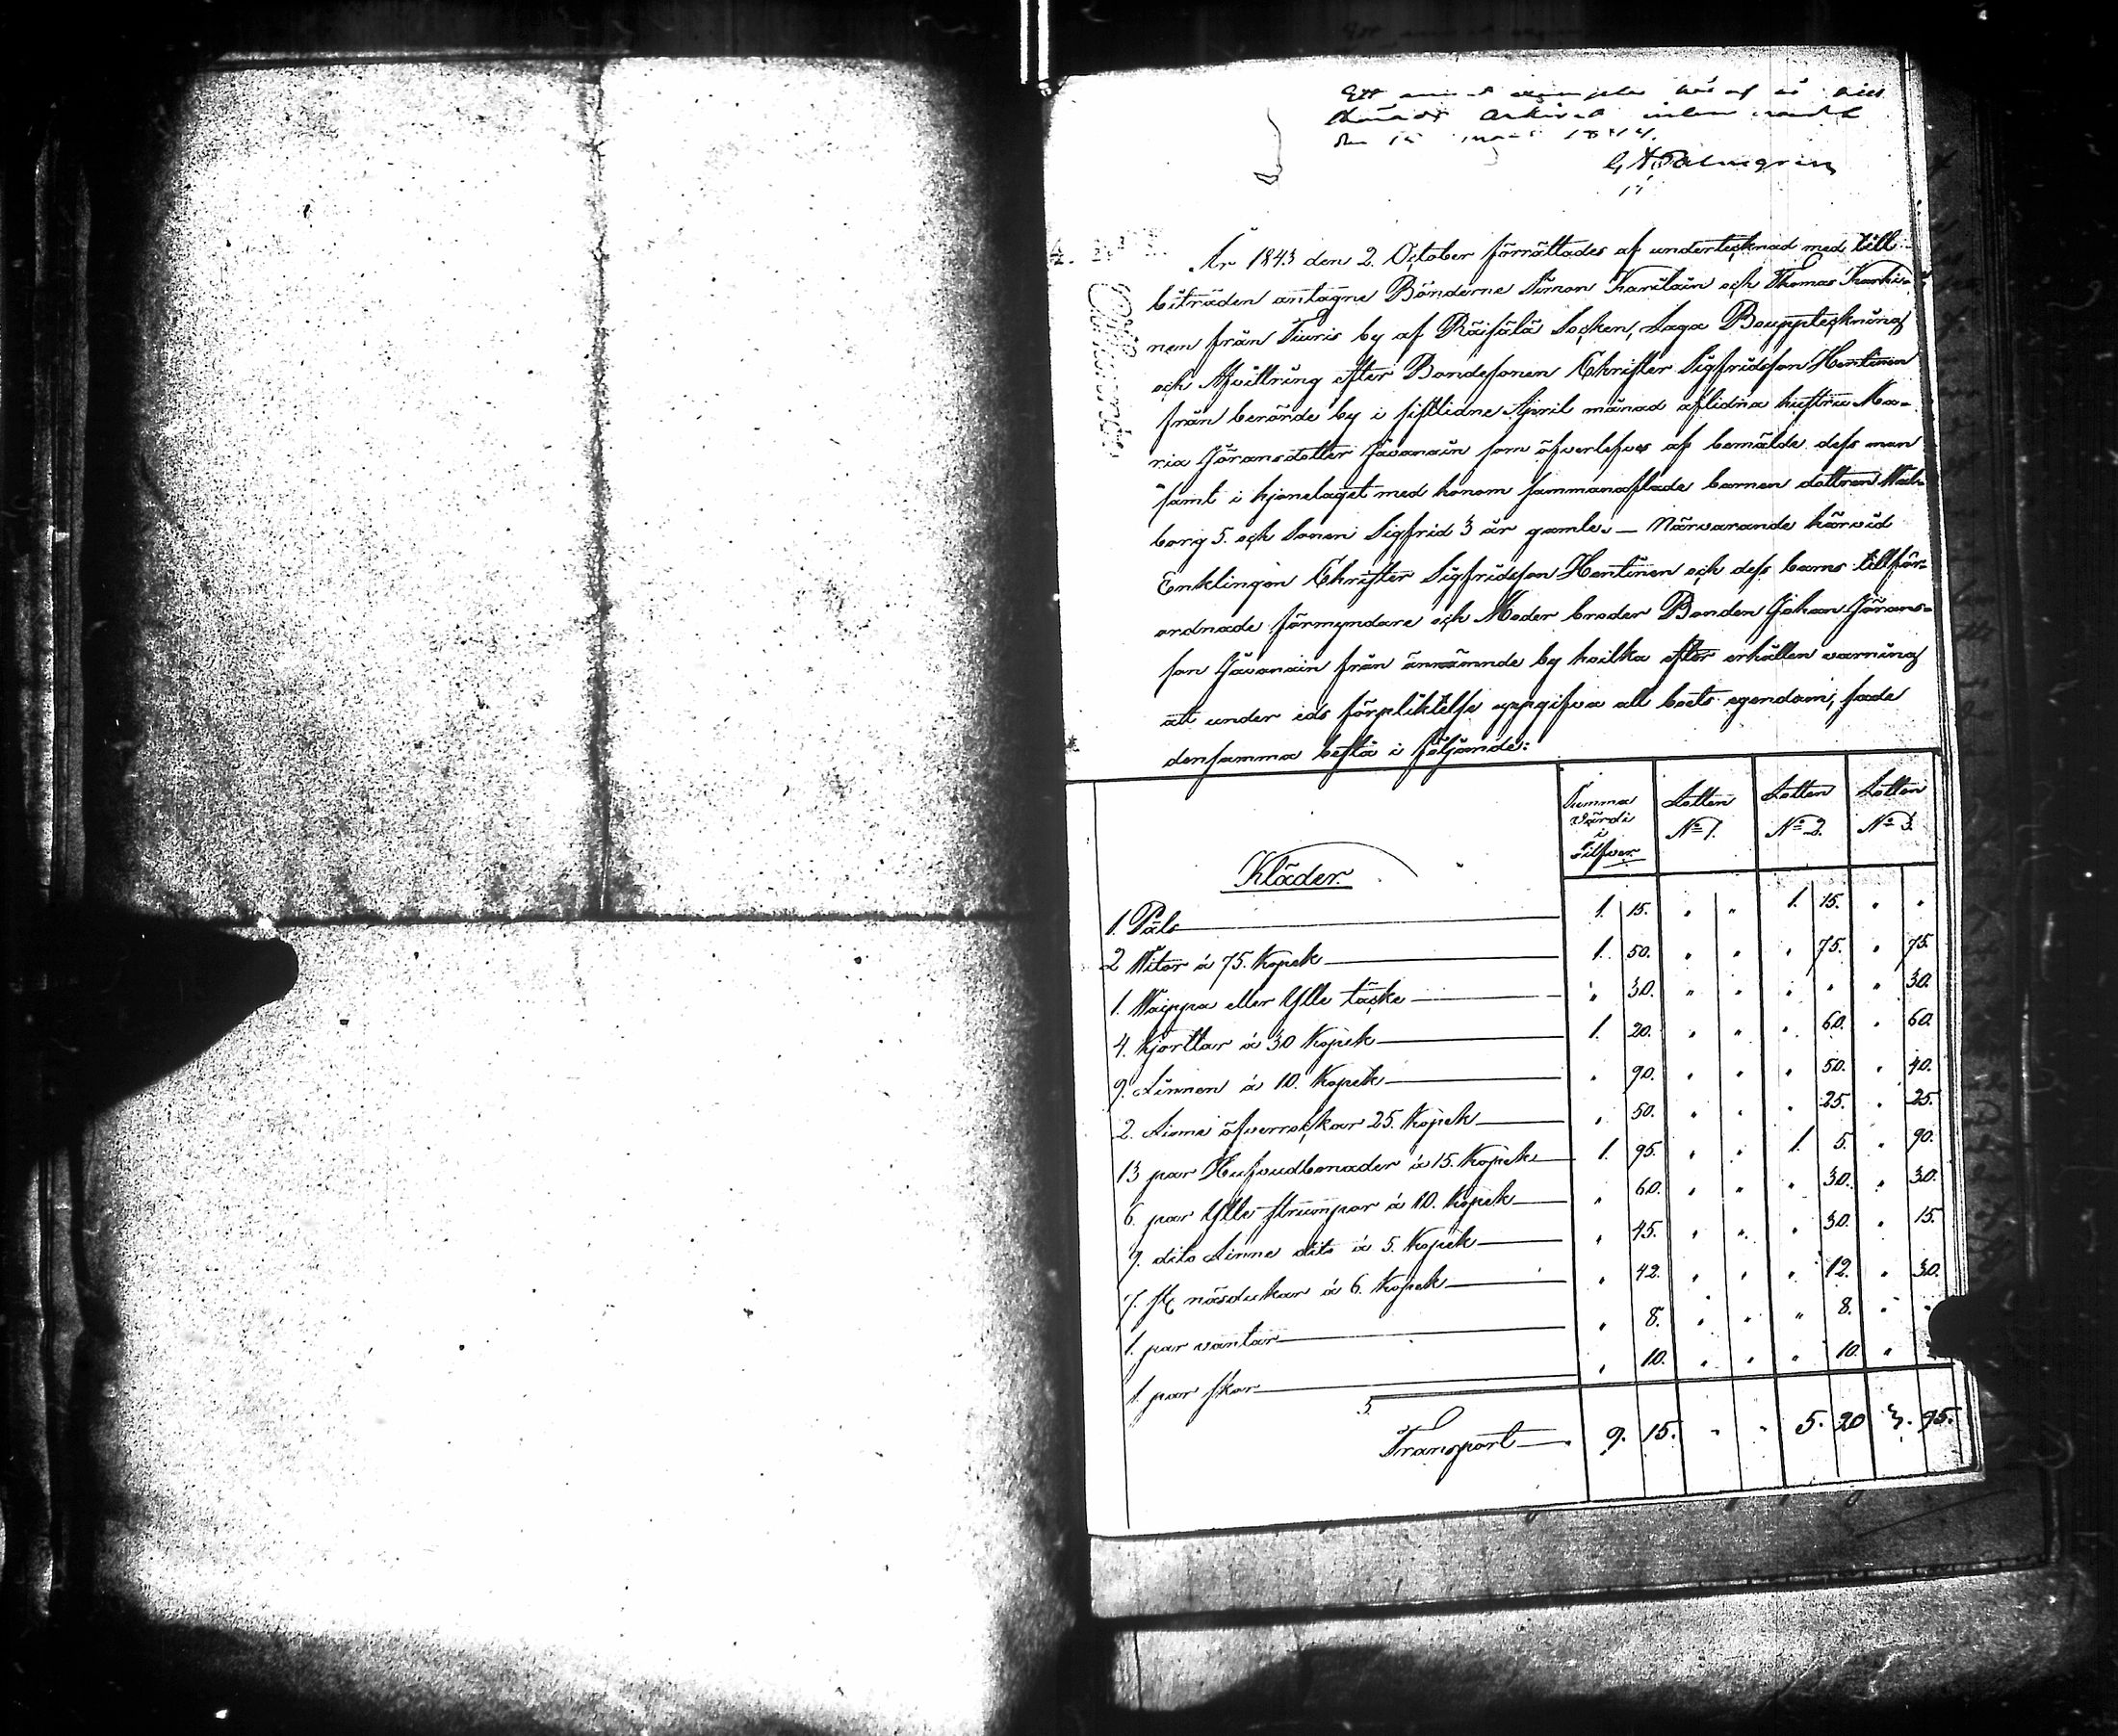 den 15 mars 1844.
År 1843 den 2. October förrättades af undertecknad med till
biträden antagne Bönderne Simon Karilain och Thomas Karhi-
nen från Tiuris by af Räisälä Socken, Laga Bouppteckning
och Afvittring efter Bondesonen Christer Sigfridsson Hentinen
från berörde by i sistlidne April månad aflidna hustru Ma-
ria Jöransdotter Jävanain som öfverlefves af bemälde dess man
samt i hjonelaget med honom sammanaflade barnen dottren Wal-
borg 5. och Sonen Sigfrid 3 år gamle. — Närvarande härvid
Enklingen Christer Sigfridsson Hentinen och dess barns tillför-
ordnade förmyndare och Moder broder Bonden Johan Jörans-
son Jävanain från ännämnde by hvilka efter erhållen varning
att under eds förpliktelse uppgifva all boets egendom, sade
densamma bestå i följande:
Summa Värde i Silfver Lotten No 1. Lotten No 2. Lotten No 3.
Kläder.
1. Päls 1. 15. " " 1. 15. " "
2 Witor á 75. Kopek 1. 50. " " " 75. " 75.
1. Waippa eller Ylle täcke " 30. " " " " " 30.
4. Kjortlar á 30 Kopek 1. 20. " " " 60. " 60.
9. Linnen á 10. Kopek " 90. " " " 50. " 40.
2. Linne öfverrockar 25. Kopek " 50. " " " 25. " 25.
13 par Hufvudbonader á 15. Kopek 1. 95. " " 1. 5. " 90.
6. par Ylle strumpor á 10. Kopek " 60. " " " 30. " 30.
9. dito Linne dito á 5. Kopek " 45. " " " 30. " 15.
7. st näsdukar á 6. Kopek " 42. " " " 12. " 30.
1. par vantar " 8. " " " 8. " "
1. par skor " 10. " " " 10. "
Transport 9. 15. " " 5. 20 3. 95.